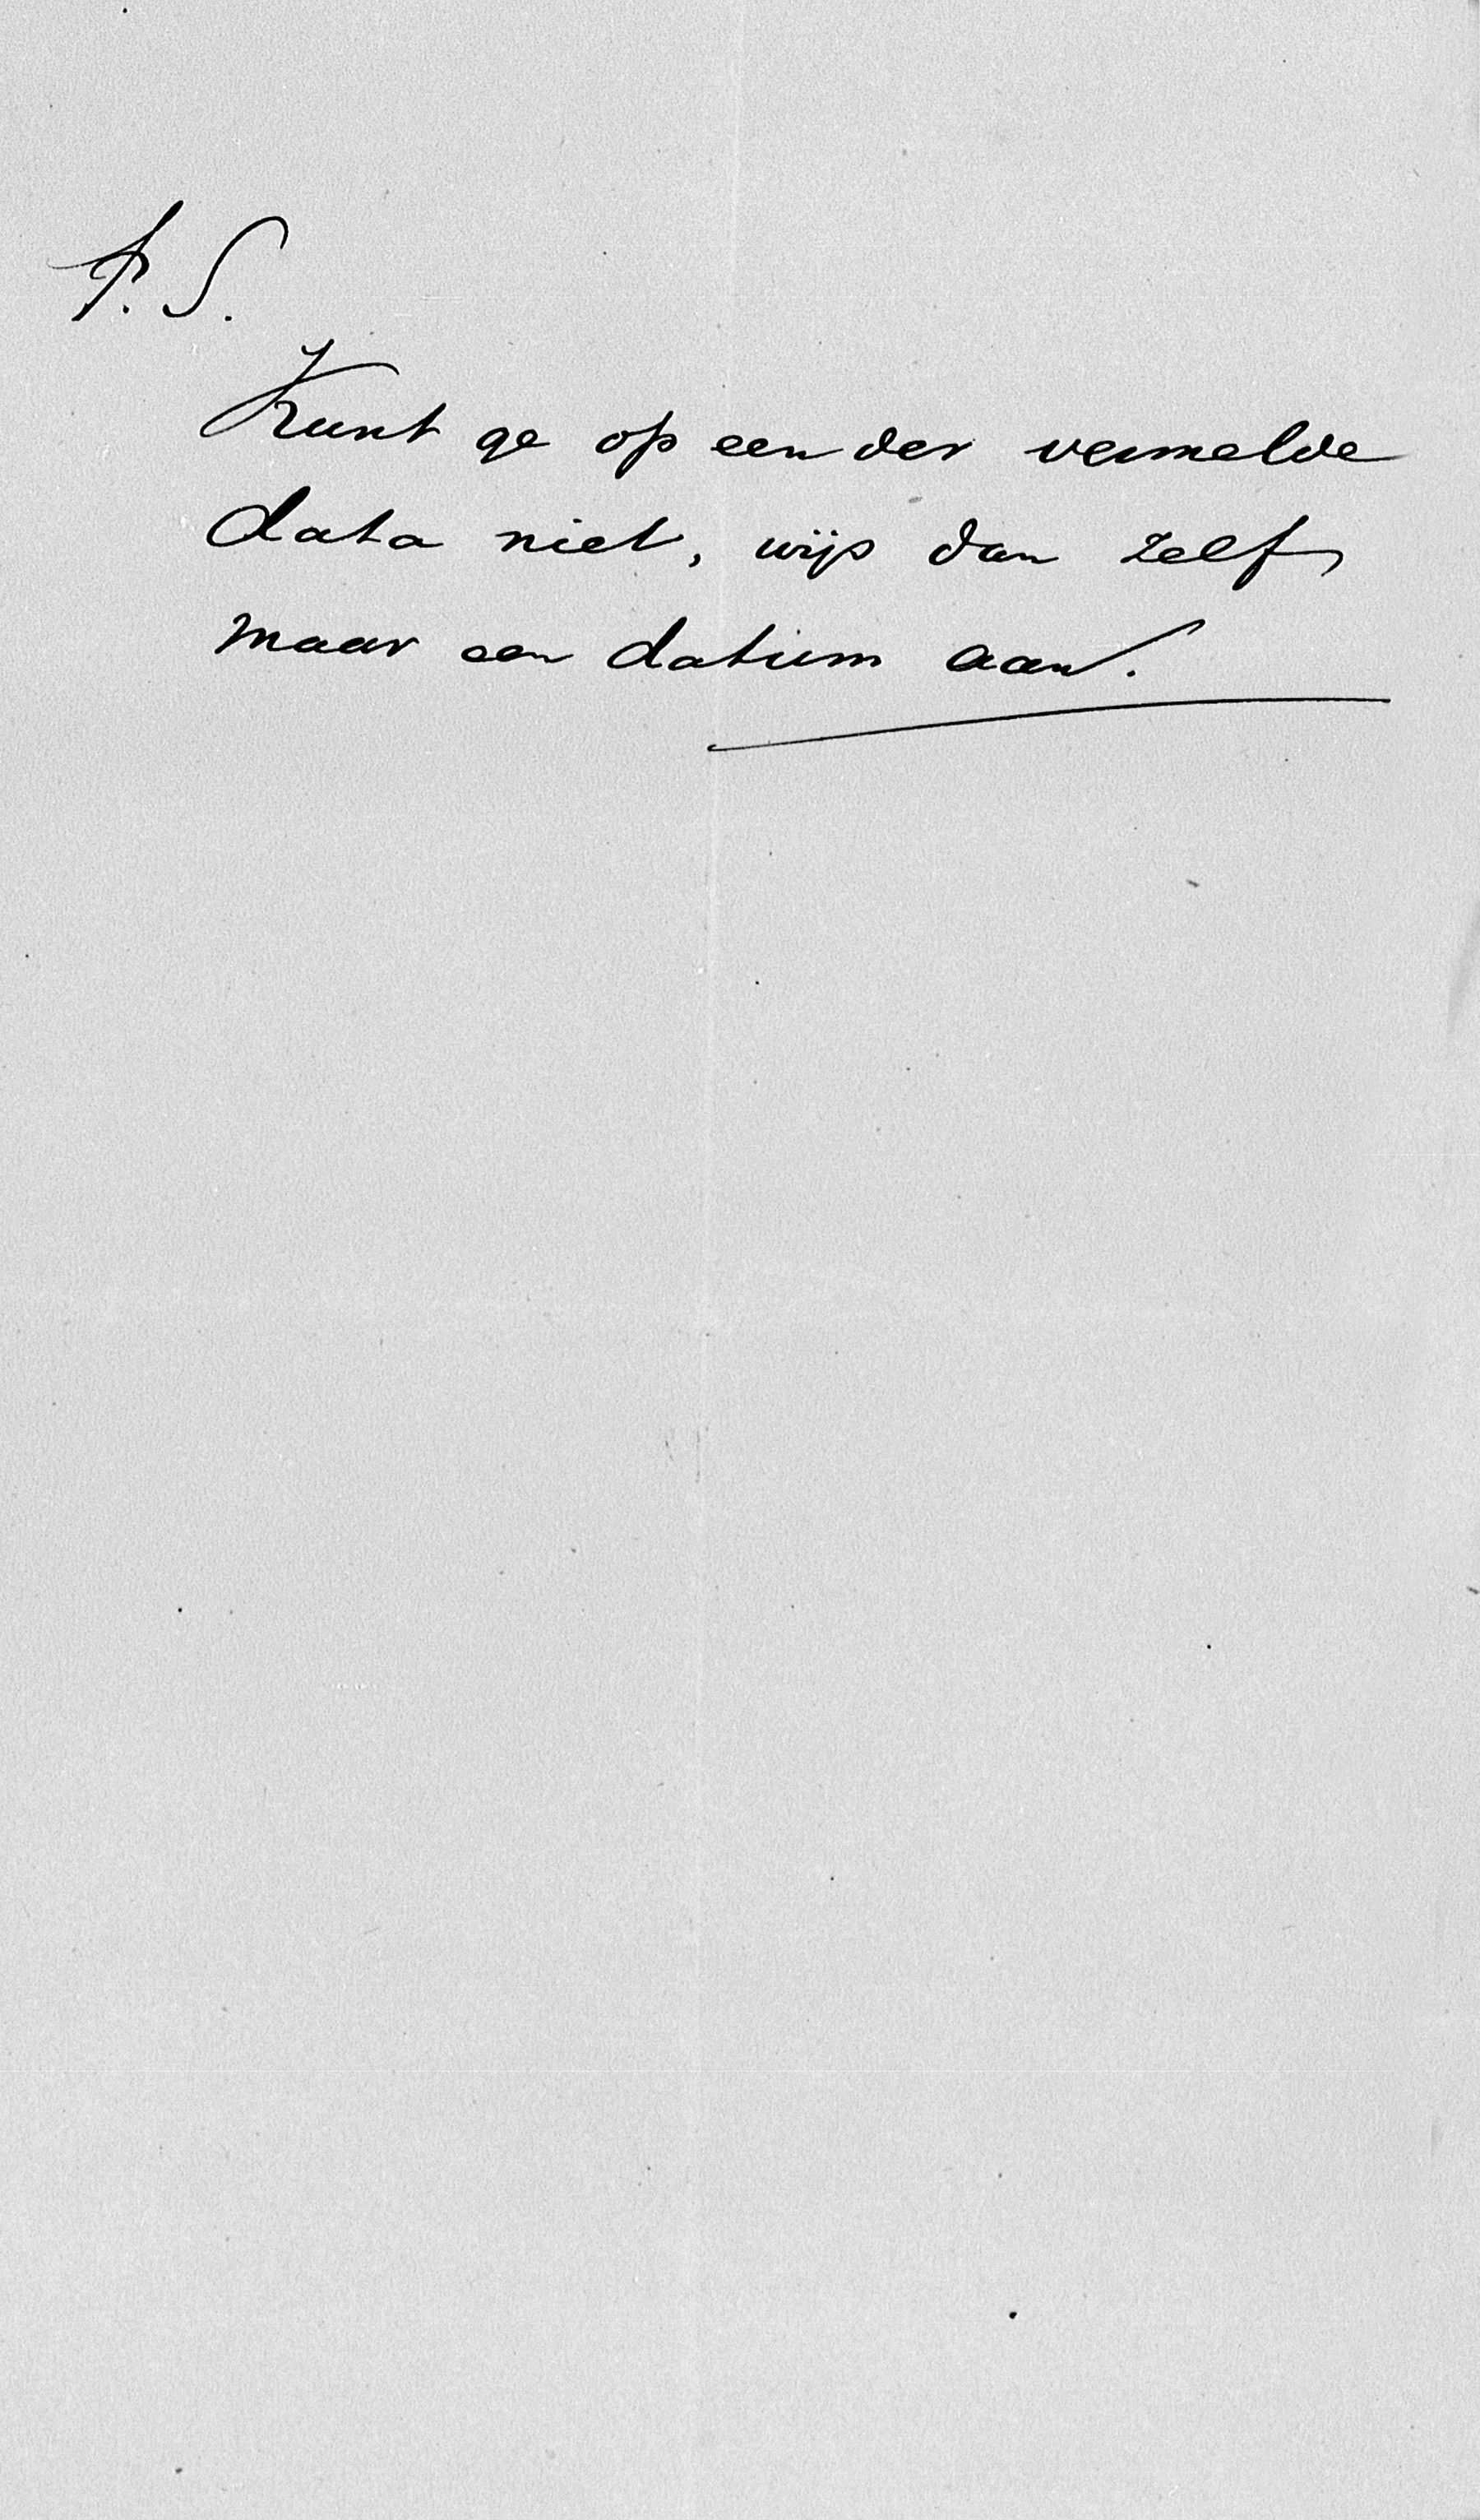 P.S.
Kunt ge op een der vermelde
data niet, wijs dan zelf
maar een datum aan.